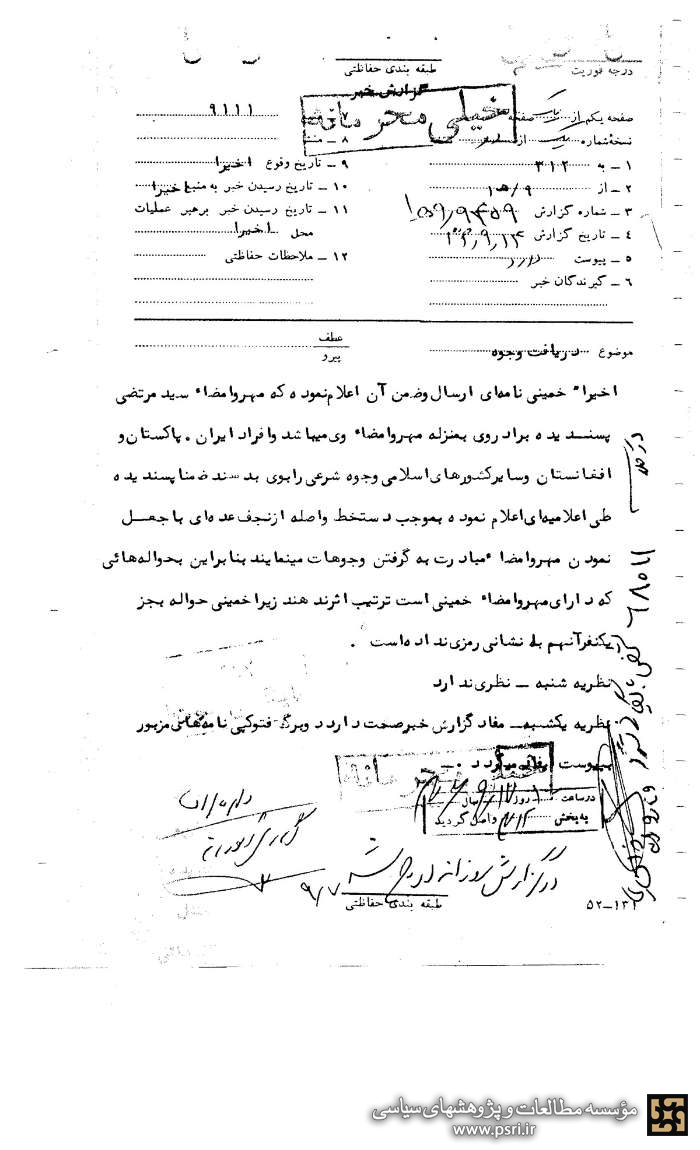 طبقه بندی حفاظتی
درجه فوریت
گزارش خبر
خیلی محرمانه
صفحه یکم از یک صفحه
نسخه شماره از
۱ - به ۳۱۲
۲ - از ۹/ه۱
۳ - شماره گزارش
۴ - تاریخ گزارش
۵ - پیوست دارد
۶ - گیرندگان خبر
۷ - ۹۱۱۱
۸ -
۹ - تاریخ وقوع اخیرا
۱۰ - تاریخ رسیدن خبر به منبع اخیرا
۱۱ - تاریخ رسیدن خبر برهبر عملیات
محل اخیرا
۱۲ - ملاحظات حفاظتی
موضوع دریافت وجوه
عطف
پیرو
اخیراً خمینی نامه‌ای ارسال وضمن آن اعلام نموده که مهروامضاء سید مرتضی
پسندیده برادر وی بمنزله مهروامضاء وی میباشد وافراد ایران . پاکستان و
افغانستان وسایر کشورهای اسلامی وجوه شرعی رابوی بدهند ضمنا پسندیده
طی اعلامیه‌ای اعلام نموده بموجب دستخط واصله ازنجف عده‌ای با جعل
نمودن مهروامضاء مبادرت به گرفتن وجوهات مینمایند بنابراین بحواله‌هائی
که دارای مهروامضاء خمینی است ترتیب اثرندهند زیرا خمینی حواله بجز
یکنفرآنهم با نشانی رمزی نداده است .
نظریه شنبه - نظری ندارد
نظریه یکشنبه - مفاد گزارش خبر صحت دارد دو برگ فتوکپی نامه‌های مزبور
پیوست ایفاد میگردد .
خیلی محرمانه
در ساعت روز سال
به بخش ۳۱۲ واصل گردید
در گزارش روزانه درج شد
۹/۷
طبقه بندی حفاظتی
۵۲-۱۳۱
مؤسسه مطالعات و پژوهشهای سیاسی
www.psri.ir